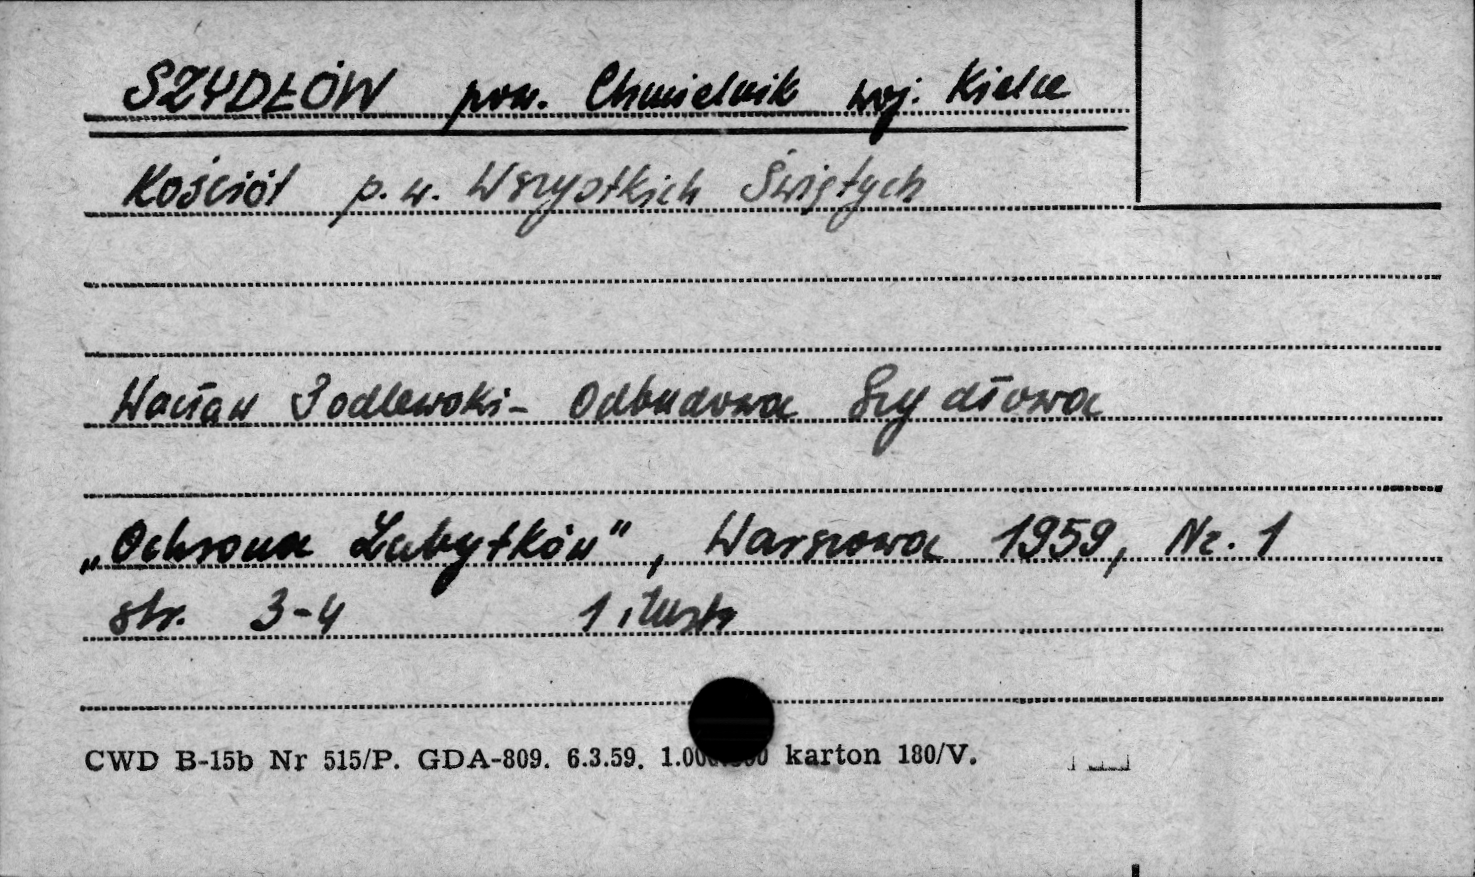 SZYDŁÓW pow. Chmielnik woj. Kielce
Kościół p.w. Wszystkich Świętych
Wacław Podlewski - Odbudowa Szydłowa
„Ochrona Zabytków", Warszawa 1959, Nr. 1
str. 3-4 1 ilustr
CWD B-15b Nr 515/P. GDA-809. 6.3.59. karton 180/V.